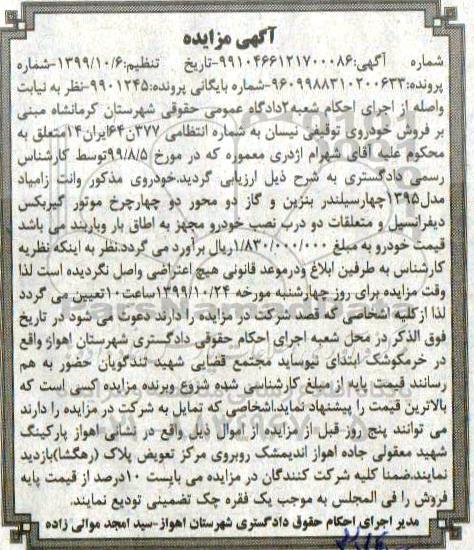 آگهی مزایده
شماره آگهی:۹۹۱۰۴۶۶۱۲۱۷۰۰۰۸۶-تاریخ تنظیم:۱۳۹۹/۱۰/۶-شماره
پرونده:۹۶۰۹۹۸۸۳۱۰۲۰۰۶۳۳-شماره بایگانی پرونده:۹۹۰۱۲۴۵-نظر به نیابت
واصله از اجرای احکام شعبه۲دادگاه عمومی حقوقی شهرستان کرمانشاه مبنی
بر فروش خودروی توقیفی نیسان به شماره انتظامی ۳۷۷ن۶۴ایران۱۴متعلق به
محکوم علیه آقای شهرام اژدری معموره که در مورخ ۹۹/۸/۵توسط کارشناس
رسمی دادگستری به شرح ذیل ارزیابی گردید.خودروی مذکور وانت زامیاد
مدل۱۳۹۵چهارسیلندر بنزین و گاز دو محور دو چهارچرخ موتور گیربکس
دیفرانسیل و متعلقات دو درب نصب خودرو مجهز به اطاق بار وباربند می باشد
قیمت خودرو به مبلغ ۱/۸۳۰/۰۰۰/۰۰۰ریال برآورد می گردد.نظر به اینکه نظریه
کارشناس به طرفین ابلاغ ودرموعد قانونی هیچ اعتراضی واصل نگردیده است لذا
وقت مزایده برای روز چهارشنبه مورخه ۱۳۹۹/۱۰/۲۴ساعت۱۰تعیین می گردد
لذا ازکلیه اشخاصی که قصد شرکت در مزایده را دارند دعوت می شود در تاریخ
فوق الذکر در محل شعبه اجرای احکام حقوقی دادگستری شهرستان اهواز واقع
در خرمکوشک ابتدای نیوساید مجتمع قضایی شهید تندگویان حضور به هم
رسانند قیمت پایه از مبلغ کارشناسی شده شروع وبرنده مزایده کسی است که
بالاترین قیمت را پیشنهاد نماید.اشخاصی که تمایل به شرکت در مزایده را دارند
می توانند پنج روز قبل از مزایده از اموال ذیل واقع در نشانی اهواز پارکینگ
شهید معقولی جاده اهواز اندیمشک روبروی مرکز تعویض پلاک (رهگشا)بازدید
نمایند.ضمنا کلیه شرکت کنندگان در مزایده می بایست ۱۰درصد از قیمت پایه
فروش را فی المجلس به موجب یک فقره چک تضمینی تودیع نمایند.
مدیر اجرای احکام حقوق دادگستری شهرستان اهواز-سید امجد موالی زاده